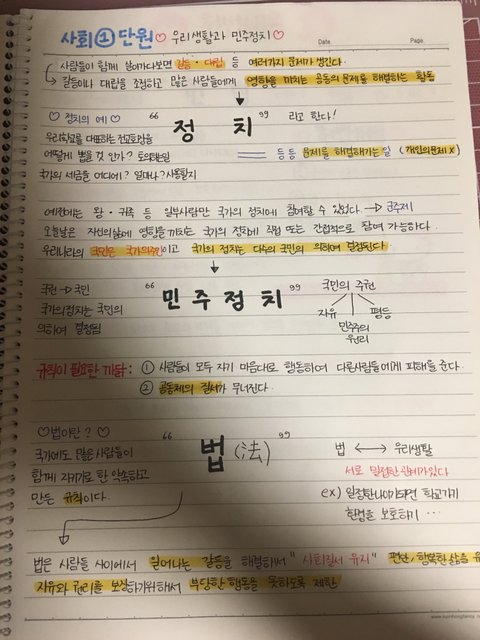 사회①단원♡ 우리생활과 민주정치♡
Date. Page.
사람들이 함께 살아가다보면 갈등·대립 등 여러가지 문제가 생긴다.
갈등이나 대립을 조정하고 많은 사람들에게 영향을 끼치는 공동의 문제를 해결하는 활동
♡ 정치의 예 ♡ “정 치” 라고 한다!
우리학교를 대표하는 전교회장을
어떻게 뽑을 것 인가? 토의하는일 등등 문제를 해결해가는일 (개인의문제 X)
국가의 세금을 어디에? 얼마나? 사용할지
예전에는 왕·귀족 등 일부사람만 국가의 정치에 참여할 수 있었다. → 군주제
오늘날은 자신의삶에 영향을 끼치는 국가의 정치에 직접 또는 간접적으로 참여 가능하다.
우리나라의 국민은 국가의주인이고 국가의 정치는 다수의 국민의 의하여 결정된다.
주권 → 국민 “민주정치” 국민의 주권
국가의정치는 국민의 자유 평등
의하여 결정됨 민주주의
원리
규칙이 필요한 까닭: ① 사람들이 모두 자기 마음대로 행동하여 다른사람들에게 피해를 준다.
② 공동체의 질서가 무너진다.
♡법이란?♡ “법(法)”
국가에도 많은사람들이 법 ↔ 우리생활
함께 지키기로 한 약속하고 서로 밀접한관계가있다
만든 규칙이다. ex) 일정한나이가되면 학교가기
환경을 보호하기 …
법은 사람들 사이에서 일어나는 갈등을 해결해서 "사회질서 유지" 편안, 행복한삶을
자유와 권리를 보장하기위해서 부당한 행동을 못하도록 제한